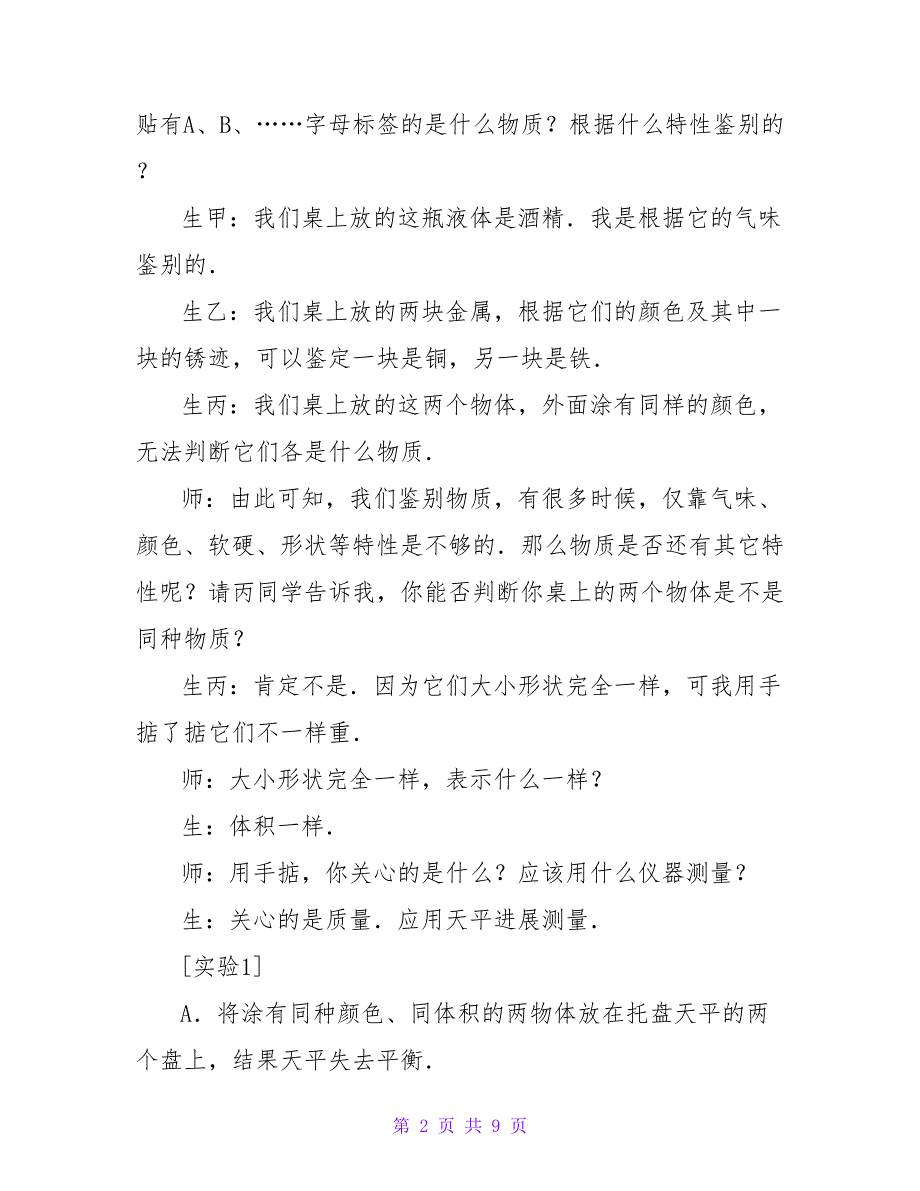 贴有A、B、……字母标签的是什么物质？根据什么特性鉴别的
？
生甲：我们桌上放的这瓶液体是酒精．我是根据它的气味
鉴别的．
生乙：我们桌上放的两块金属，根据它们的颜色及其中一
块的锈迹，可以鉴定一块是铜，另一块是铁．
生丙：我们桌上放的这两个物体，外面涂有同样的颜色，
无法判断它们各是什么物质．
师：由此可知，我们鉴别物质，有很多时候，仅靠气味、
颜色、软硬、形状等特性是不够的．那么物质是否还有其它特
性呢？请丙同学告诉我，你能否判断你桌上的两个物体是不是
同种物质？
生丙：肯定不是．因为它们大小形状完全一样，可我用手
掂了掂它们不一样重．
师：大小形状完全一样，表示什么一样？
生：体积一样．
师：用手掂，你关心的是什么？应该用什么仪器测量？
生：关心的是质量．应用天平进展测量．
[实验1]
A．将涂有同种颜色、同体积的两物体放在托盘天平的两
个盘上，结果天平失去平衡．
第 2 页 共 9 页